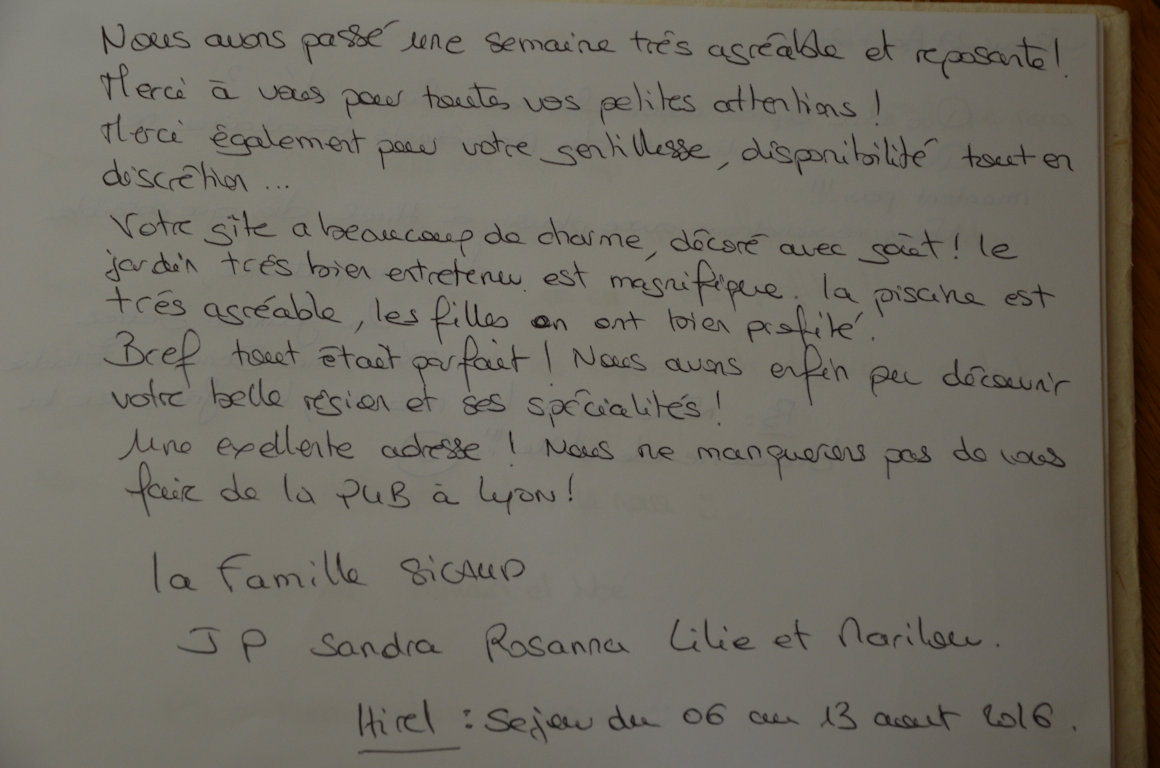 Nous avons passé une semaine trés agréable et reposante!
Merci à vous pour toutes vos petites attentions !
Merci également pour votre gentillesse, disponibilité tout en
discrêtion ...
Votre gîte a beaucoup de charme, décoré avec goût ! le
jardin trés bien entretenu est magnifique. la piscine est
trés agréable, les filles en ont bien profité.
Bref tout était parfait ! Nous avons enfin pu découvrir
votre belle région et ses spécialités !
Une exellente adresse ! Nous ne manquerons pas de vous
faire de la PUB à Lyon !
la Famille SiCAUD
J P Sandra Rosanna Lilie et Marilou.
Hirel : Sejou du 06 au 13 aout 2016.